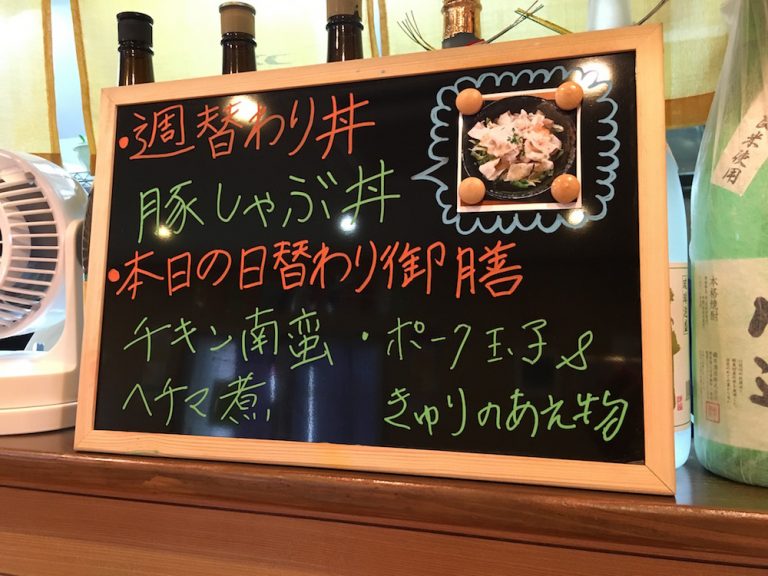 ・週替わり丼
豚しゃぶ丼
・本日の日替わり御膳
チキン南蛮・ポーク玉子&
ヘチマ煮 きゅりのあえ物
米使用
本格焼酎